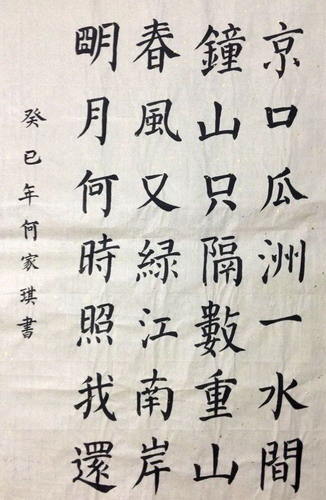 京口瓜洲一水間
鐘山只隔數重山
春風又綠江南岸
朙月何時照我還
癸巳年何家琪書